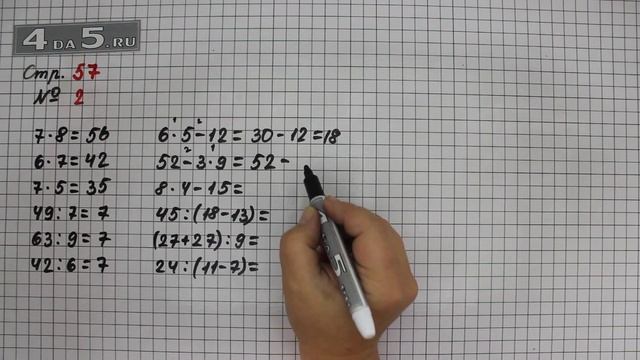 4DA5.RU
Стр. 57
№ 2
7·8=56
6·7=42
7·5=35
49:7=7
63:9=7
42:6=7
1 2
6·5-12=30-12=18
2 1
52-3·9=52-
8·4-15=
45:(18-13)=
(27+27):9=
24:(11-7)=
5